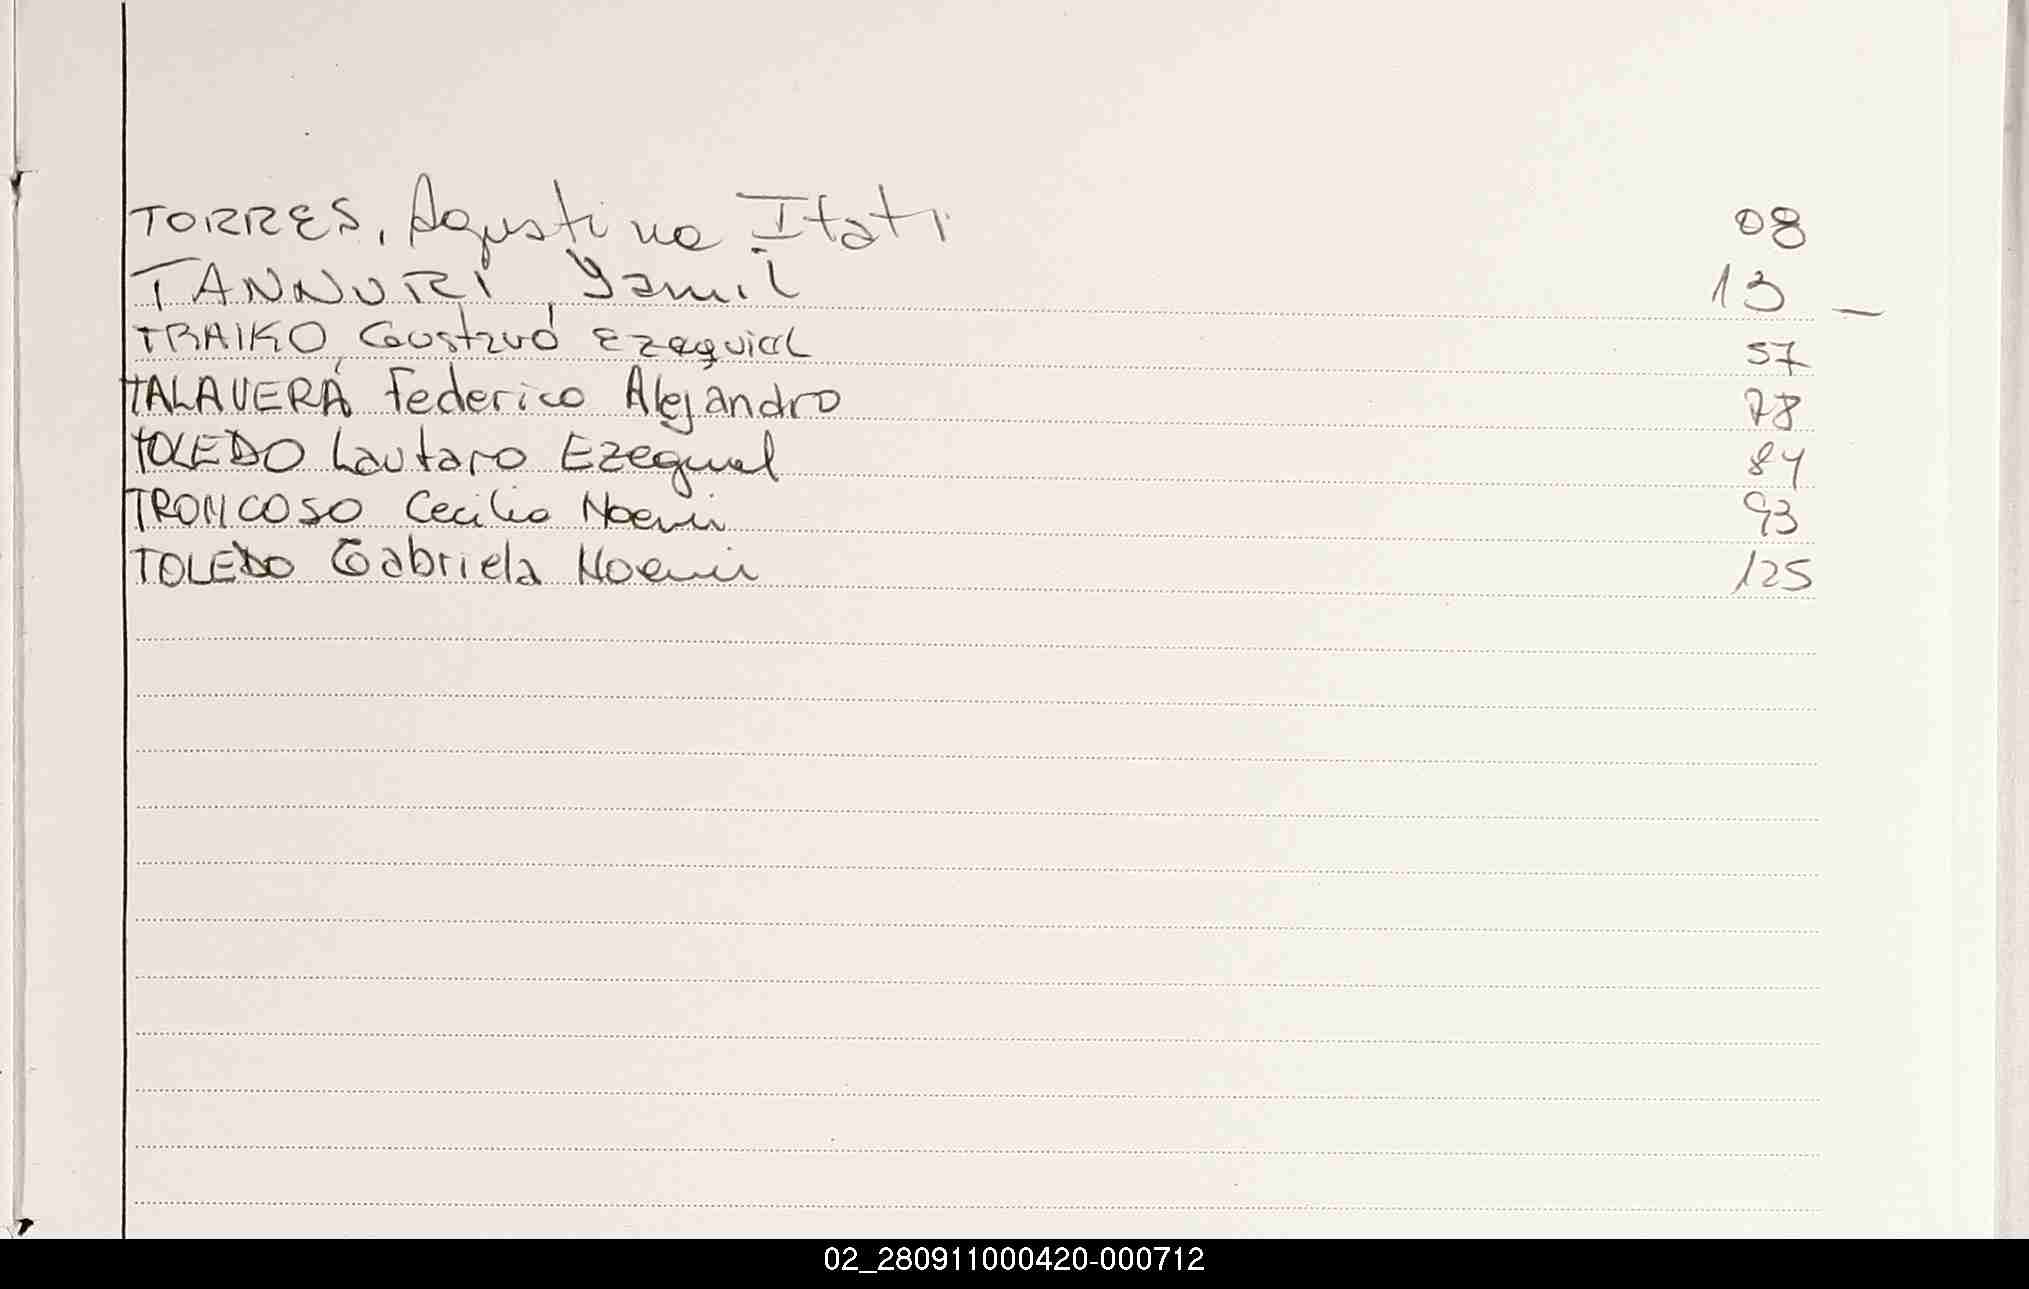 TORRES, Agustina Itati 08
TANNURI, Yamil 13 —
TRAIKO, Gustavo Ezequiel 57
TALAVERA, Federico Alejandro 78
TOLEDO Lautaro Ezequiel 84
TRONCOSO Cecilia Noemi 93
TOLEDO Gabriela Noemi 125
02_280911000420-000712